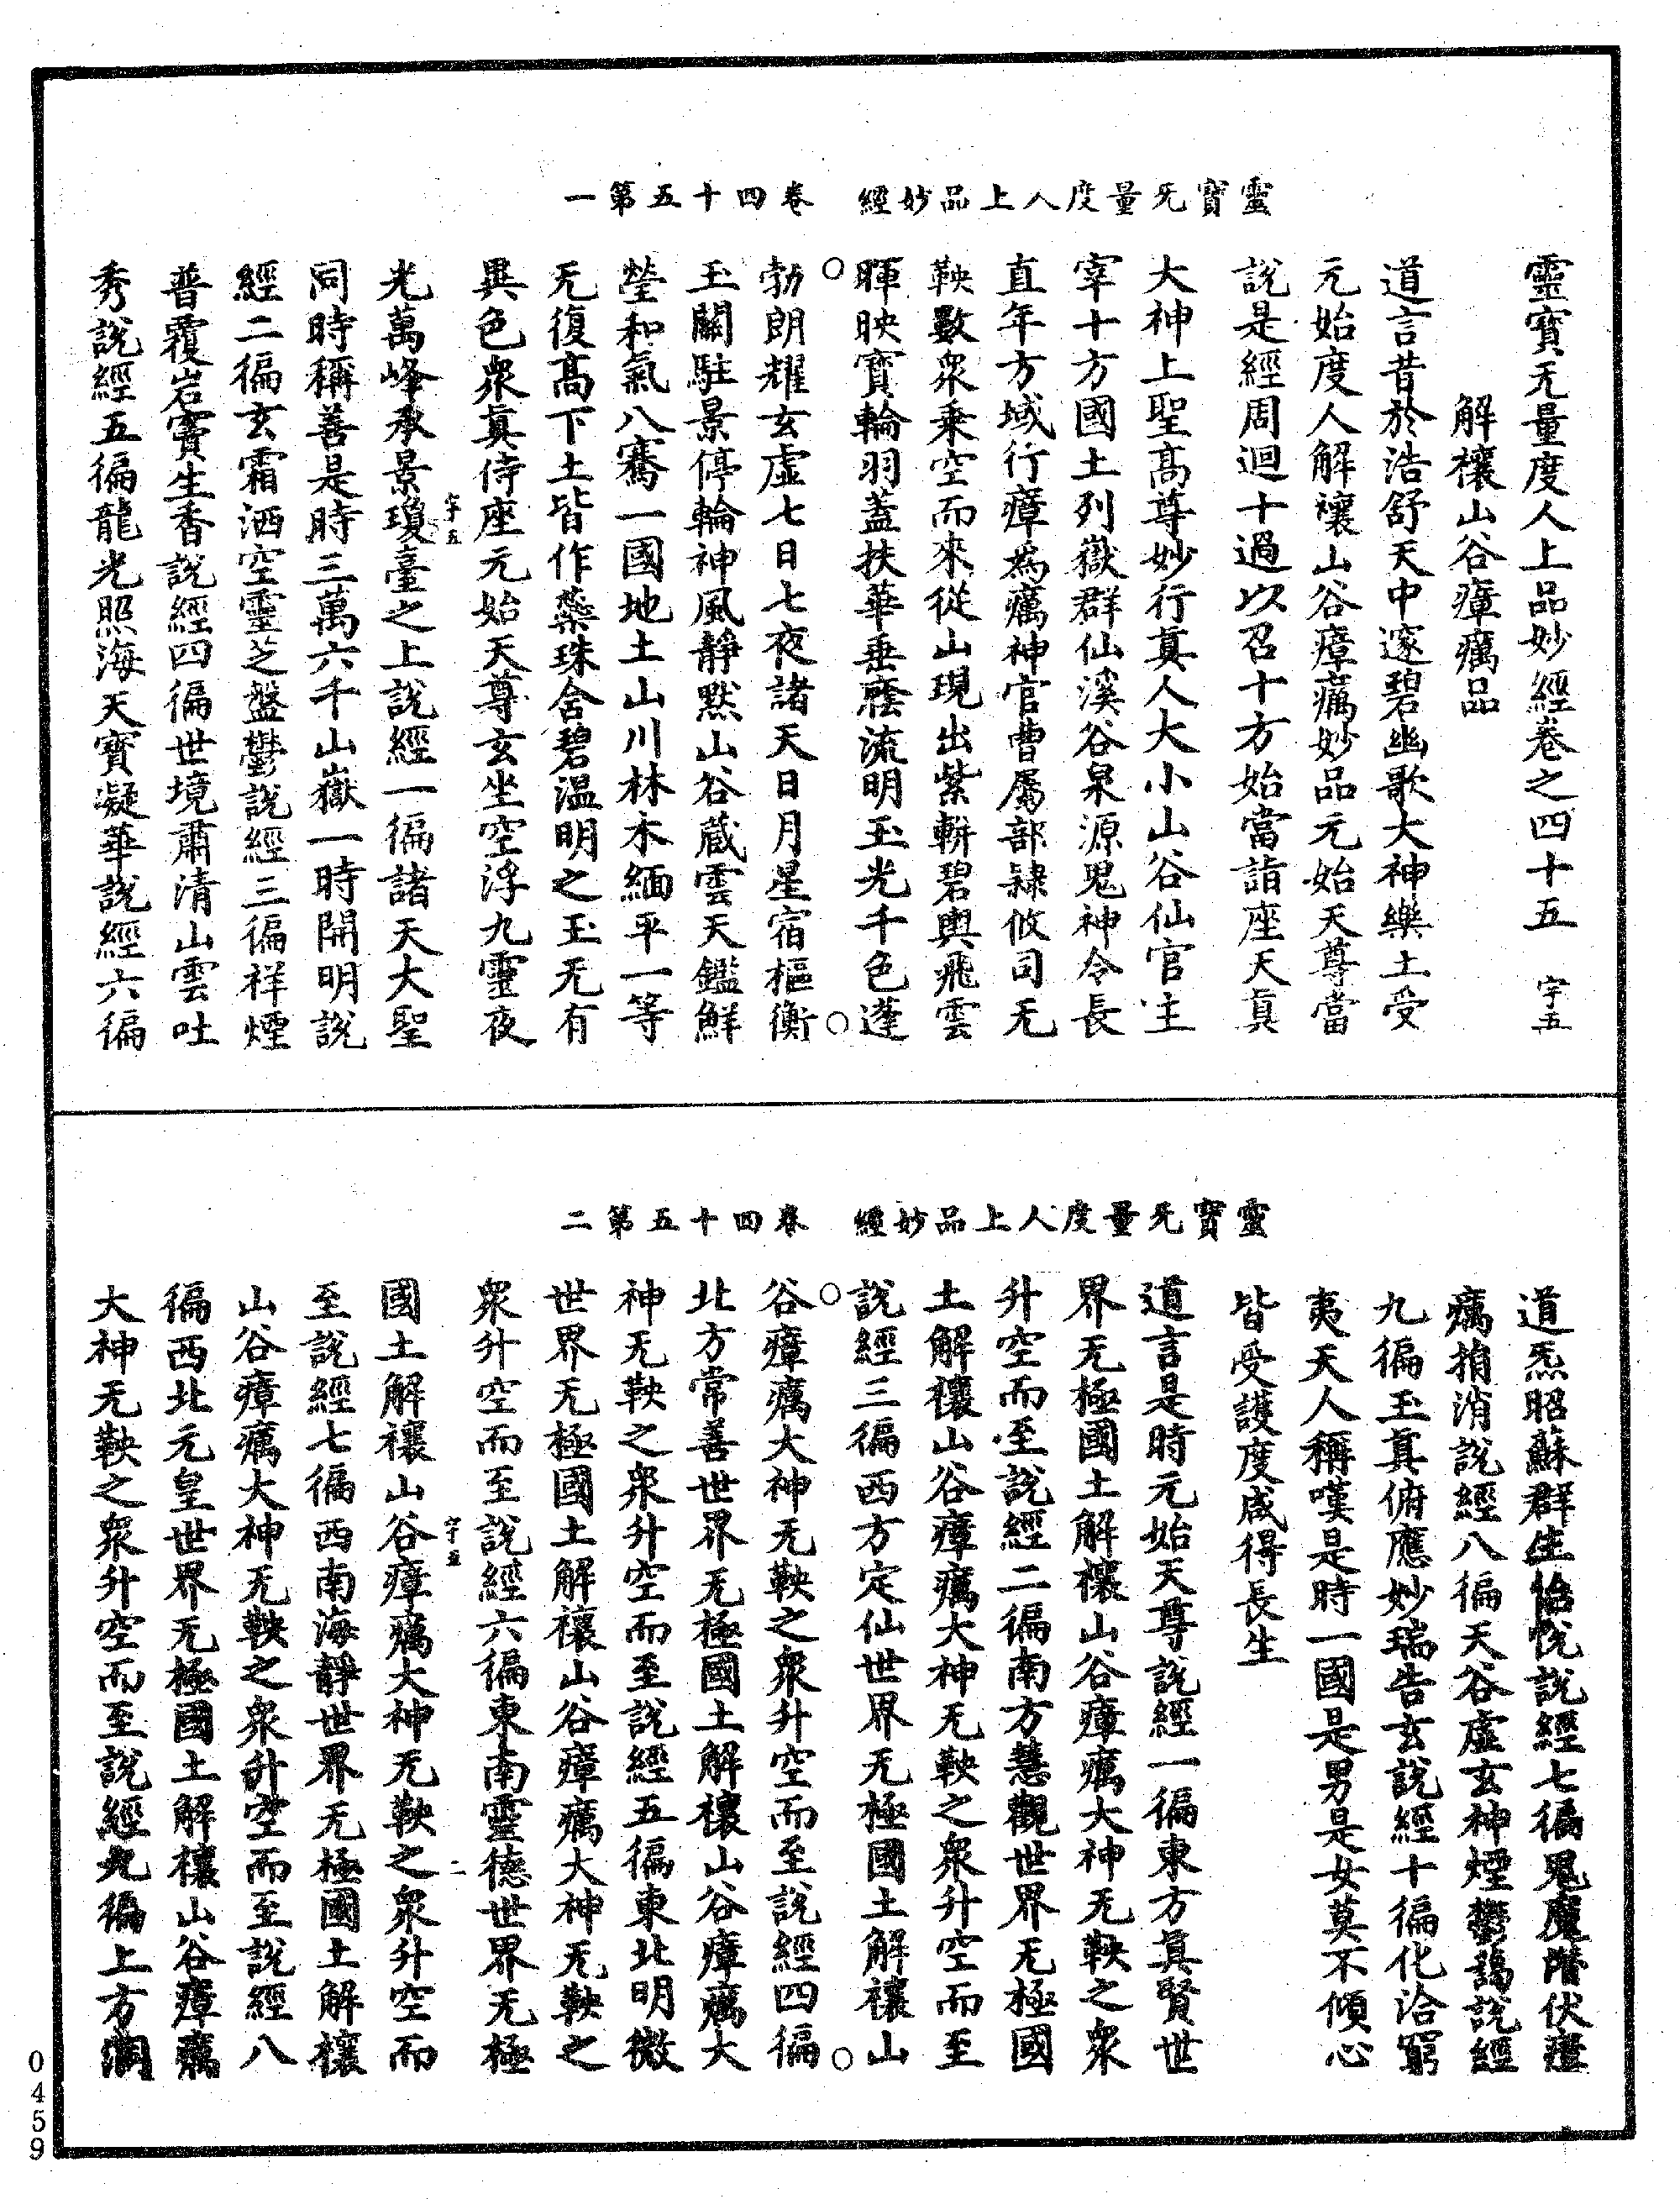 靈寶无量度人上品妙經　卷四十五第一
靈寶无量度人上品妙經卷之四十五　字五
解禳山谷瘴癘品
道言昔於浩舒天中邃碧幽歌大神樂土受
元始度人解禳山谷瘴癘妙品元始天尊當
說是經周迴十過以召十方始當詣座天真
大神上聖高尊妙行真人大小山谷仙官主
宰十方國土列嶽群仙溪谷泉源鬼神令長
直年方域行瘴為癘神官曹屬部隷攸司无
鞅數眾乘空而來從山現出紫軿碧輿飛雲
暉映寶輪羽蓋扶華垂蔭流明玉光千色蓬
勃朗耀玄虛七日七夜諸天日月星宿樞衡
玉關駐景停輪神風靜默山谷蔵雲天鑑鮮
瑩和氣八騫一國地土山川林木緬平一等
无復高下土皆作蘂珠舍碧溫明之玉无有
異色眾真侍座元始天尊玄坐空浮九靈夜
光萬峰承景瓊臺之上說經一徧諸天大聖
字五
同時稱善是時三萬六千山嶽一時開明說
經二徧玄霜洒空靈芝盤鬱說經三徧祥煙
普覆岩竇生香說經四徧世境肅清山雲吐
秀說經五徧龍光照海天寶凝華說經六徧
靈寶无量度人上品妙經　卷四十五第二
道炁昭蘇群生怡悅說經七徧鬼魔潛伏瘴
癘捐消說經八徧天谷虛玄神煙鬱藹說經
九徧玉真俯應妙瑞告玄說經十徧化洽窮
夷天人稱嘆是時一國是男是女莫不傾心
皆受護度咸得長生
道言是時元始天尊說經一徧東方真賢世
界无極國土解禳山谷瘴癘大神无鞅之眾
升空而至說經二徧南方慧觀世界无極國
土解禳山谷瘴癘大神无鞅之眾升空而至
說經三徧西方定仙世界无極國土解禳山
谷瘴癘大神无鞅之眾升空而至說經四徧
北方常善世界无極國土解禳山谷瘴癘大
神无鞅之眾升空而至說經五徧東北明微
世界无極國土解禳山谷瘴癘大神无鞅之
眾升空而至說經六徧東南靈德世界无極
國土解禳山谷瘴癘大神无鞅之眾升空而
字五　二
至說經七徧西南海靜世界无極國土解禳
山谷瘴癘大神无鞅之眾升空而至說經八
徧西北元皇世界无極國土解禳山谷瘴癘
大神无鞅之眾升空而至說經九徧上方洞
0459